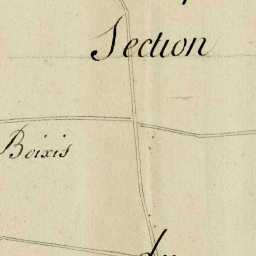 Section
Beixis